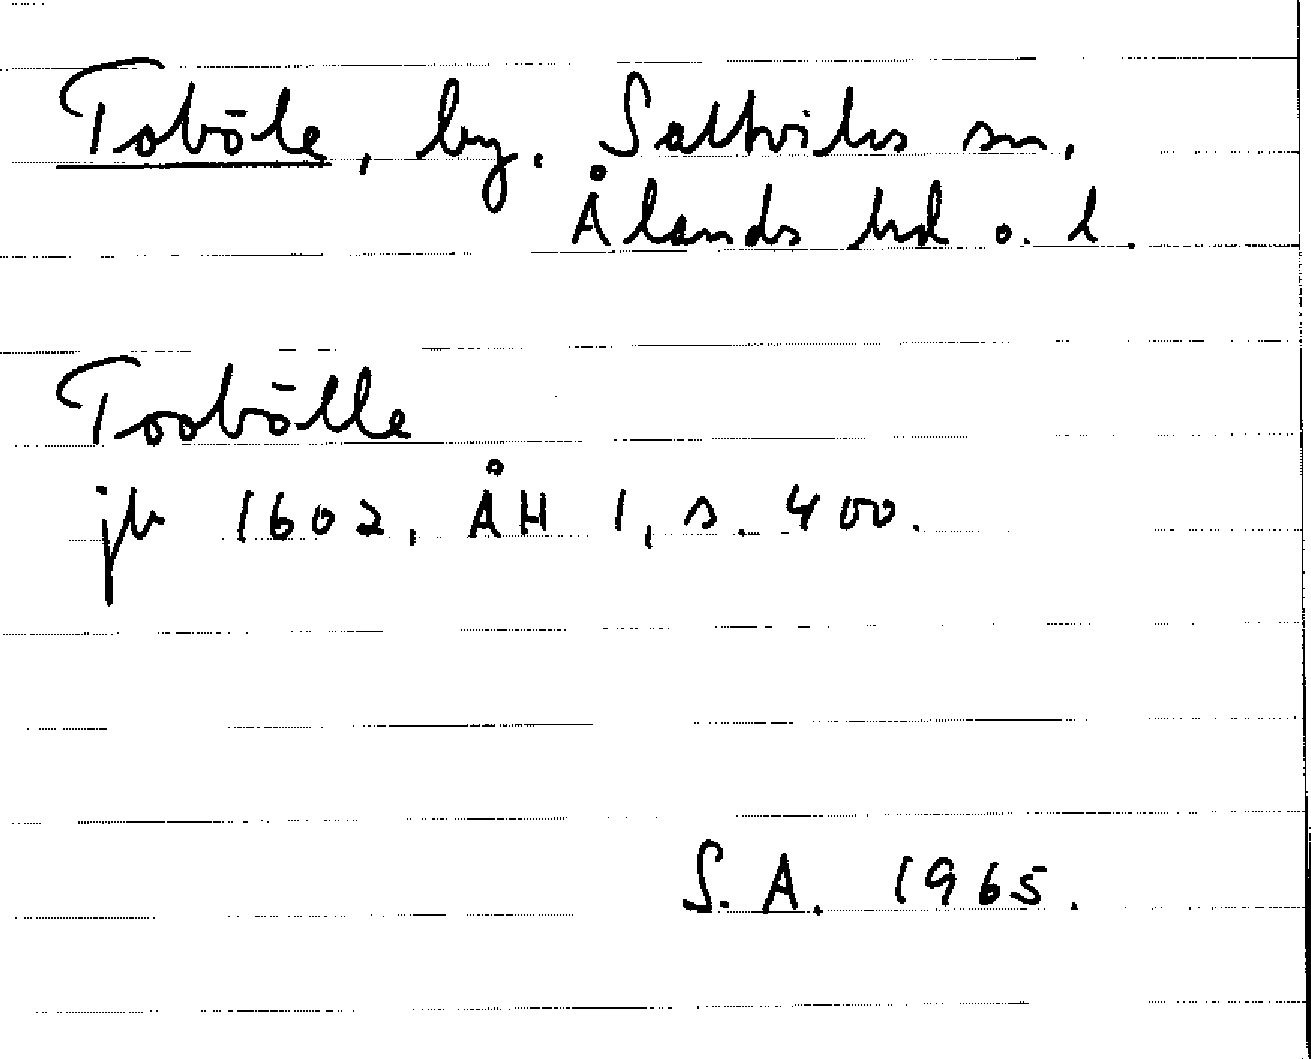 Toböle, by. Saltviks sn.
Ålands hd o. l.
Toobölle
jb 1602, ÅH 1, s. 400.
S. A. 1965.